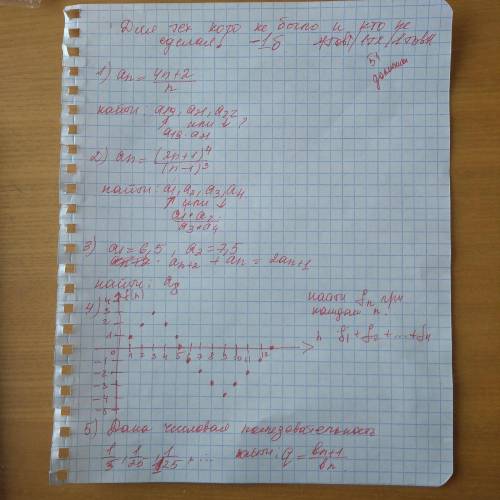 Для тех кого не было и кто не
сделал! -1б
должны
1) an = 4n+2 / n
найти: a19, a21, a22
↑ или ↓ ?
a19 · a21
2) an = (2n+1)^4 / (n-1)^3
найти: a1, a2, a3, a4
↑ или ↓
a1+a2 / a3+a4
3) a1=6,5, a2=7,5
an+2 + an = 2an+1
найти: a9
4) f(n)
4
3
2
1
0
1 2 3 4 5 6 7 8 9 10 11 12
-1
-2
-3
-4
-5
найти fn при
каждом n.
f1+f2+...+fn
5) Дана числовая последовательность
1/5, 1/25, 1/125, ... найти: q = bn+1 / bn